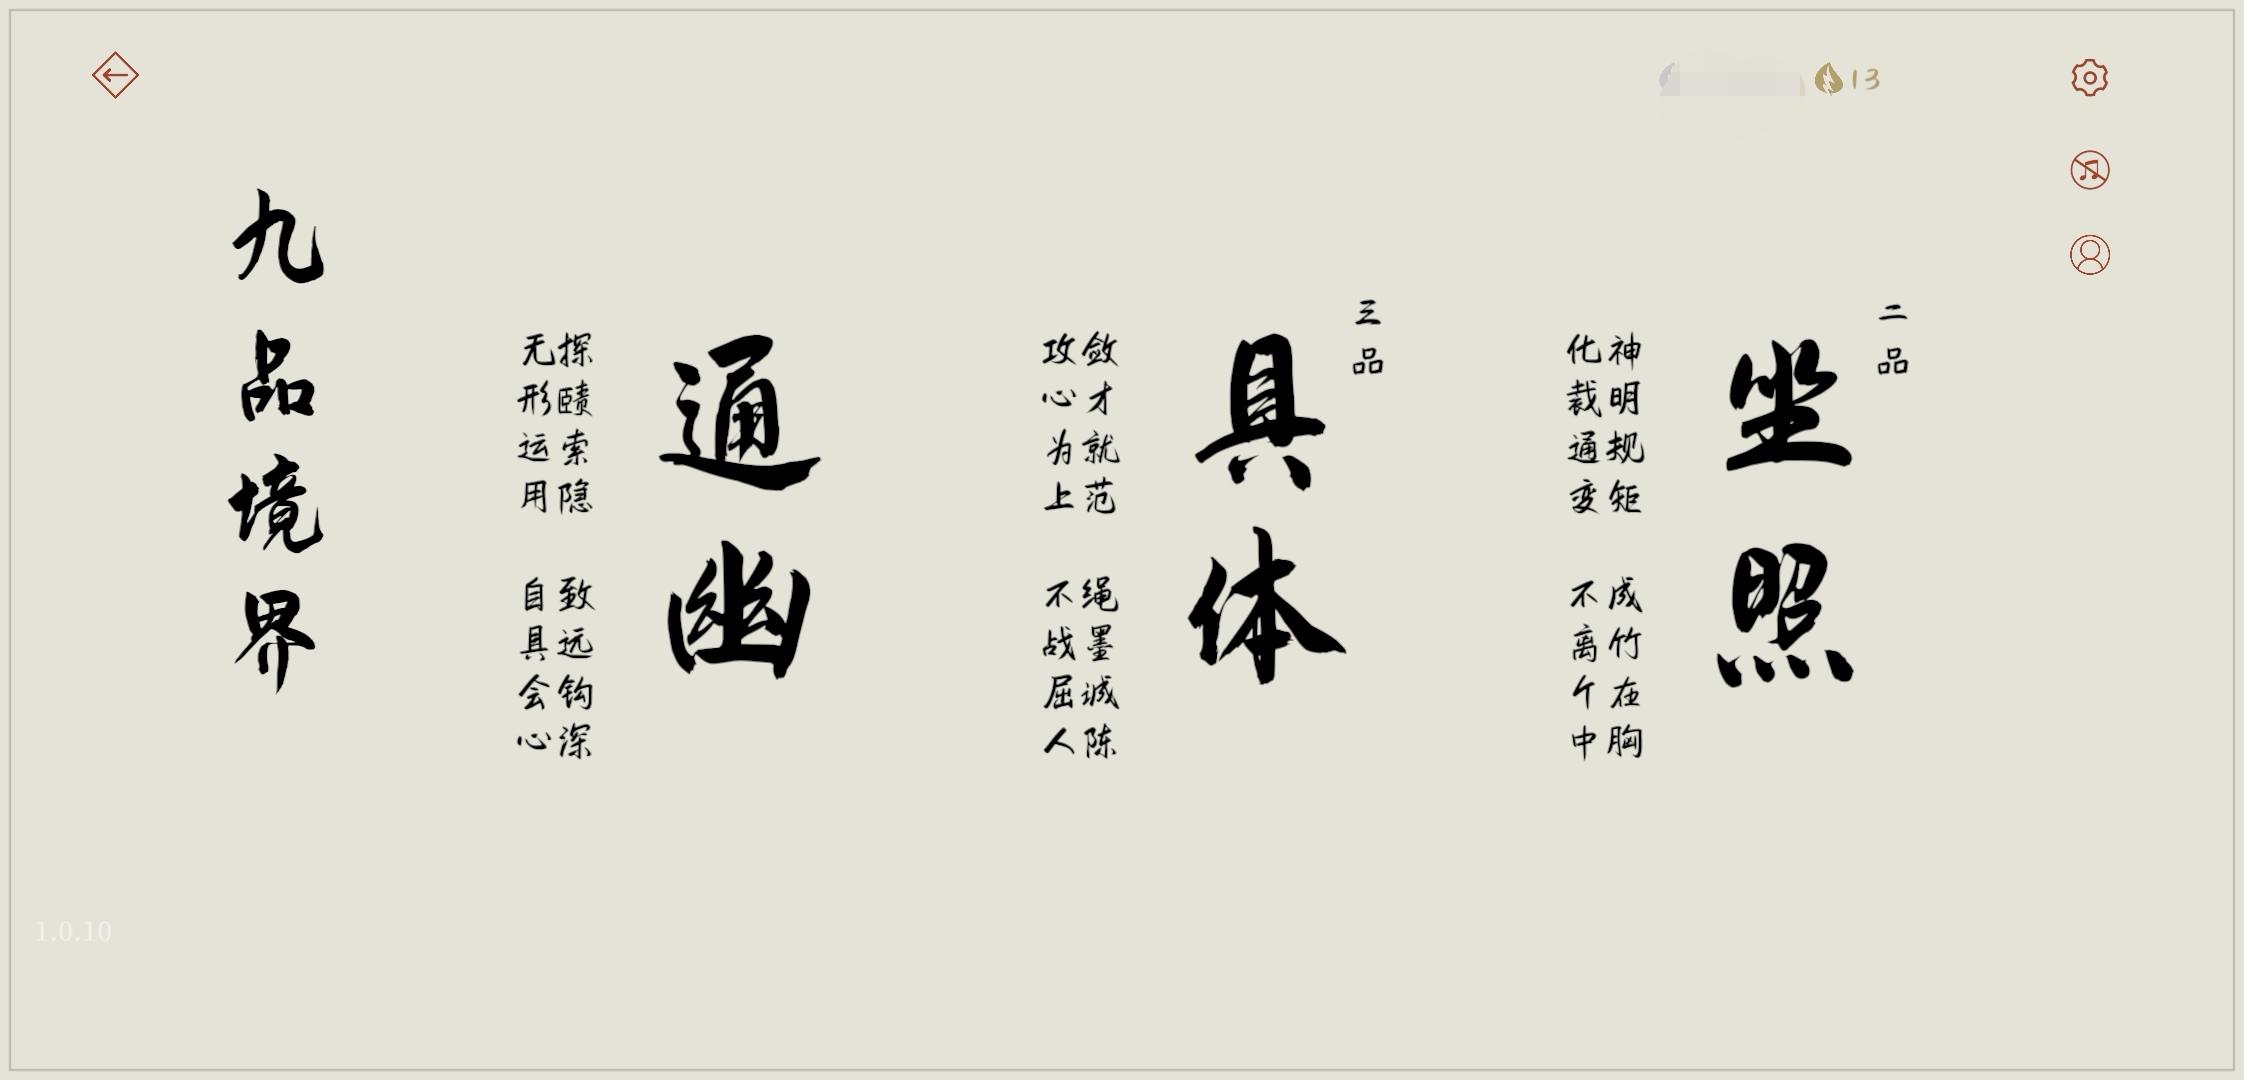 九品境界
13
二品
坐照
神明规矩 成竹在胸
化裁通变 不离个中
三品
具体
敛才就范 绳墨诚陈
攻心为上 不战屈人
通幽
探赜索隐 致远钩深
无形运用 自具会心
1.0.10